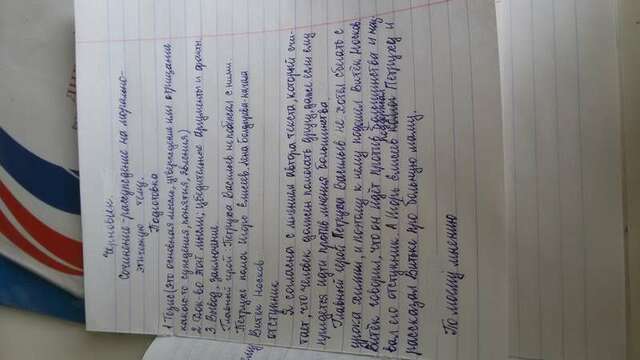 Черновик.
Сочинение-рассуждение на морально-
этическую тему.
Подготовка
1. Тезис (это основная мысль, утверждение или отрицание
какого-то суждения, понятия, явления)
2. Док-во этой мысли; убедительные аргументы и факты
3. Вывод-заключение
Главный герой - Петруха Васильев не побежал с ними.
Петрухе помог Игорь Елисеев, Лена начала
Витёк Носков
отступник
Я согласна с мнением автора текста, который счи-
тает, что человек должен помогать другу, даже если ему
придется идти против мнения большинства.
Главный герой Петруха Васильев не хотел сбегать с
урока химии, и поэтому к нему подошёл Витёк Носков.
Витёк говорил, что он идёт против большинства и наз-
вал его отступник. А Игорь Елисеев Петруху и
рассказал Витьке про больную маму.
По моему мнению